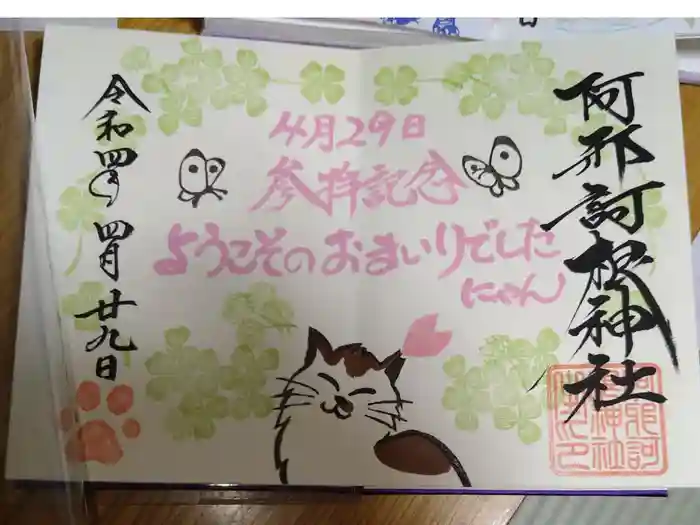 阿那訶根神社
4月29日
参拝記念
ようこそのおまいりでした
にゃん
令和四年四月廿九日